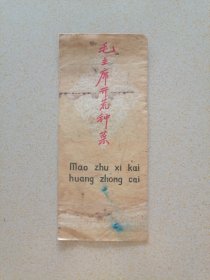 毛主席开荒种菜
Mao zhu xi kai
huang zhong cai